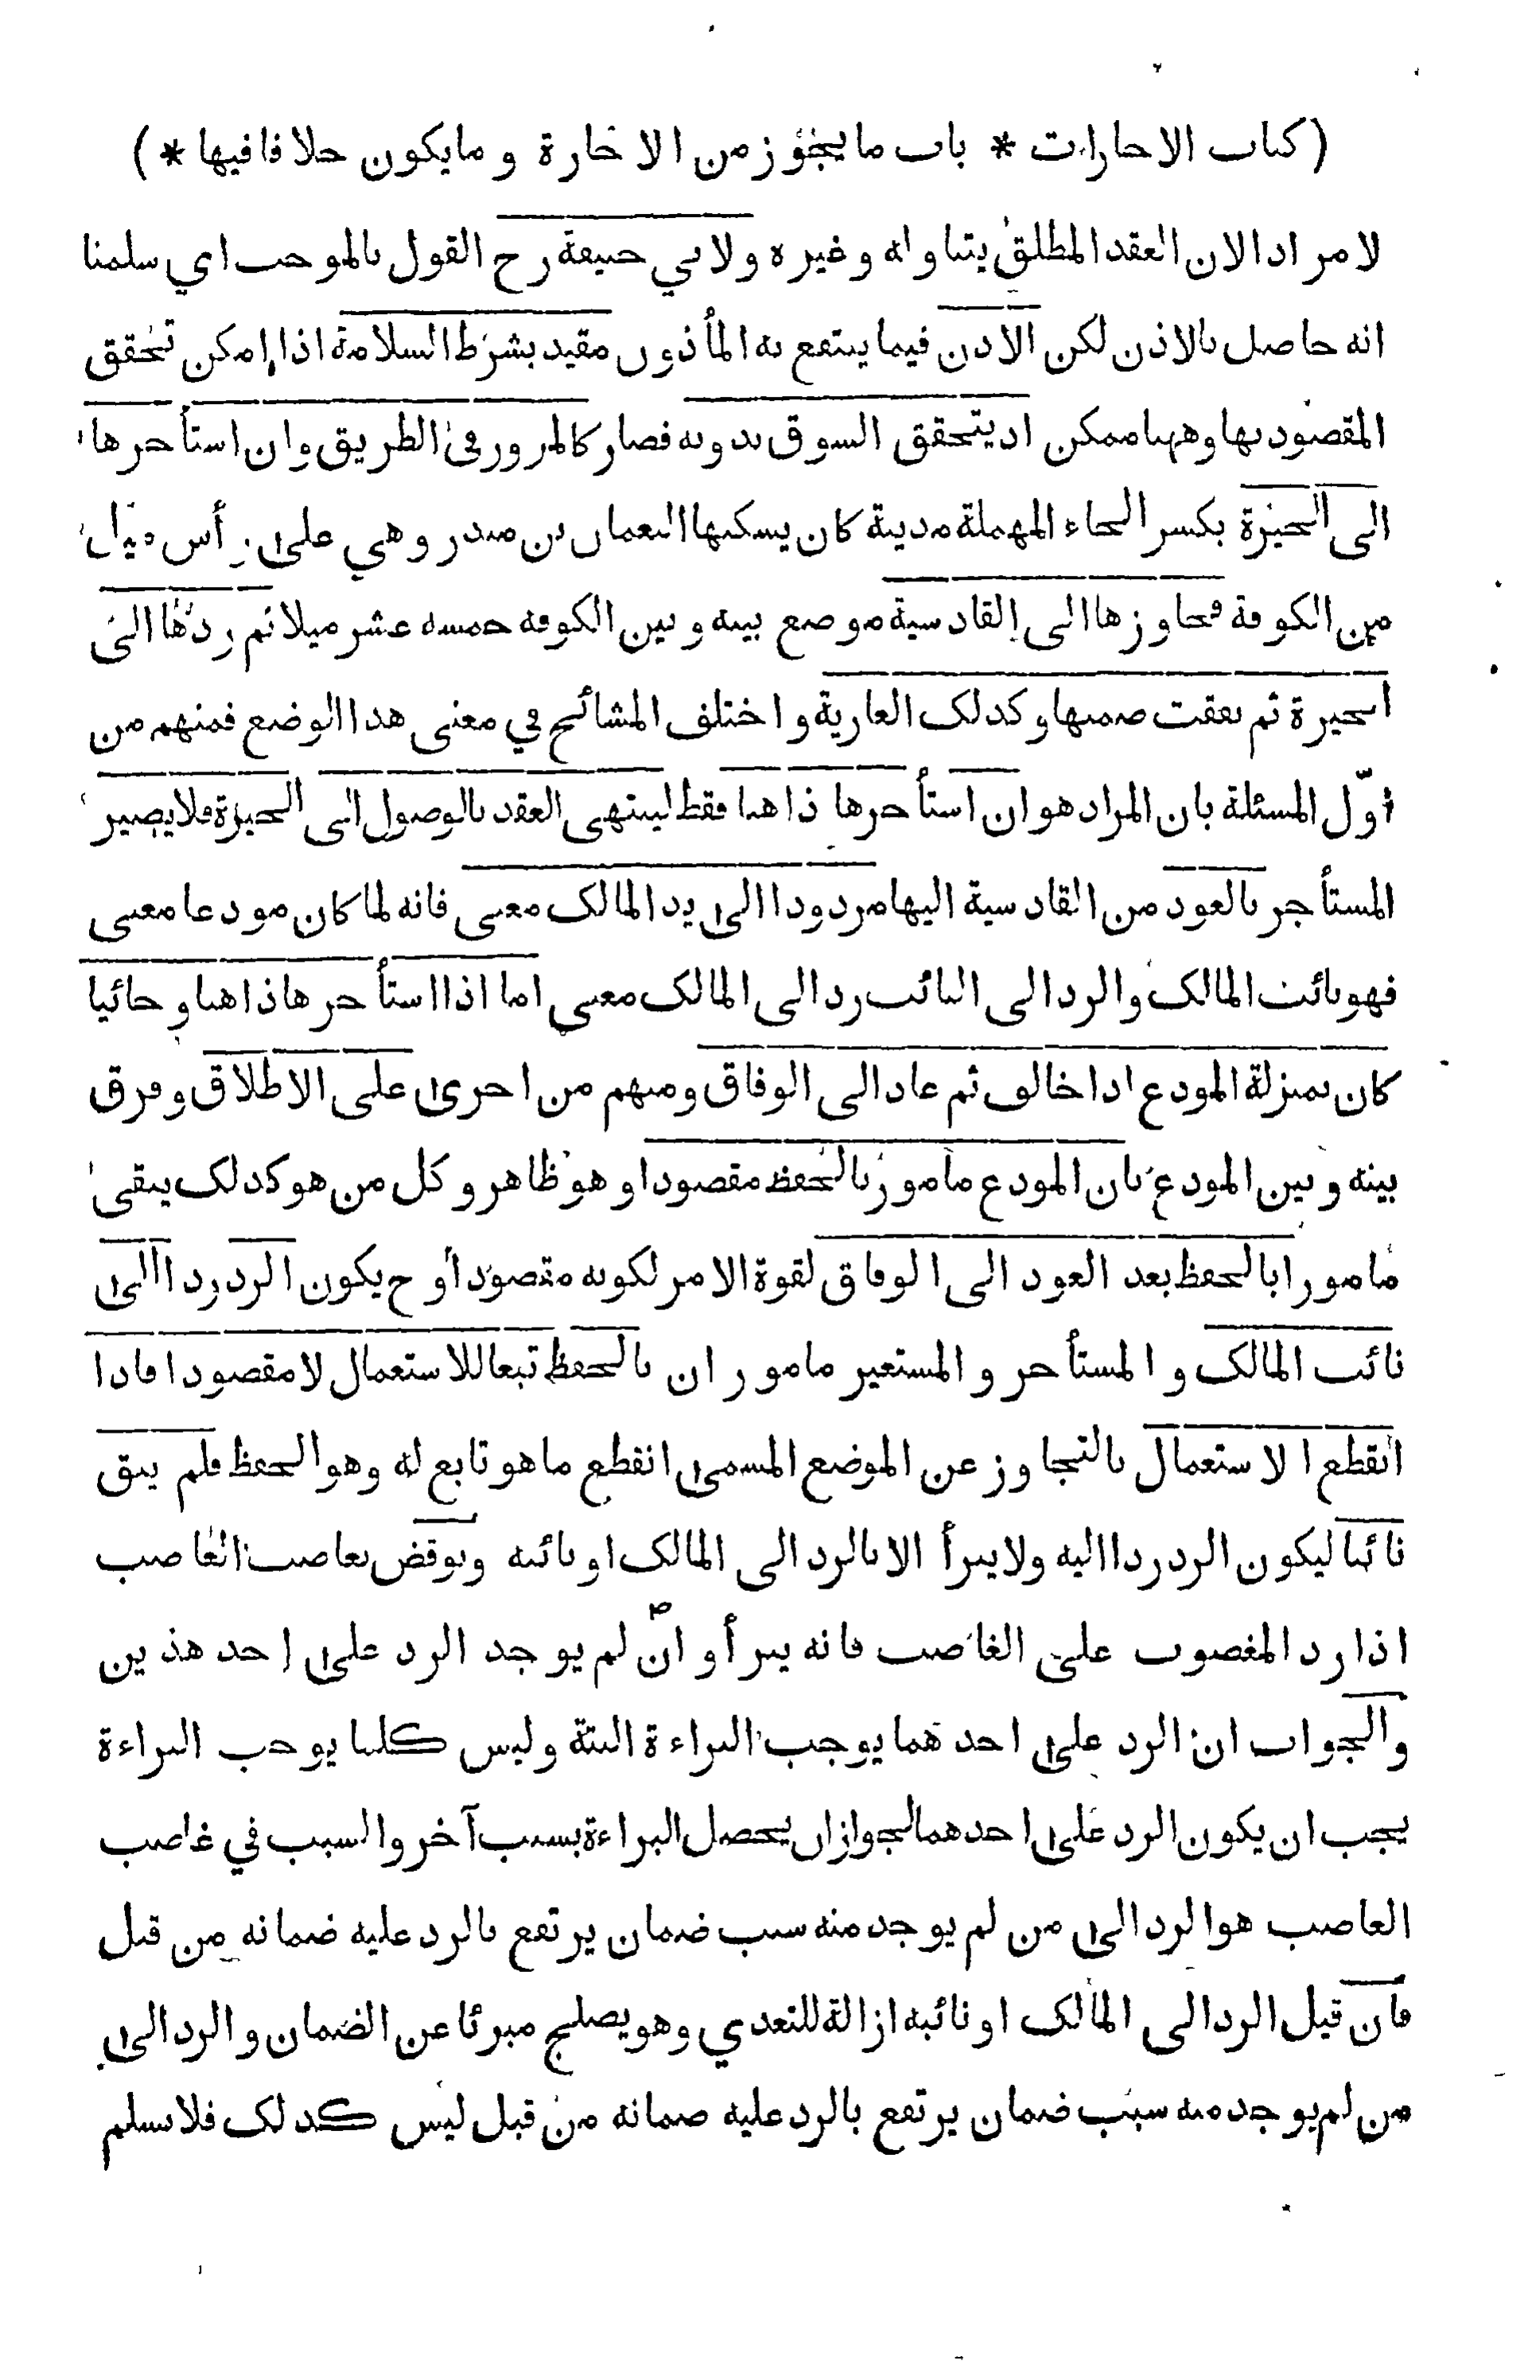 (كتاب الاجارات * باب ما يجوز من الاجارة وما يكون خلافا فيها *)
لا مراد الان العقد المطلق يتناوله وغيره ولابي حنيفة رح القول بالموجب اي سلمنا
انه حاصل بالاذن لكن الاذن فيما ينتفع به المأذون مقيد بشرط السلامة اذا امكن تحقق
المقصود بها وههنا ممكن اذ يتحقق السوق بدونه فصار كالمرور في الطريق وان استأجرها
الى الحيرة بكسر الحاء المهملة مدينة كان يسكنها النعمان بن منذر وهي على رأس ميل
من الكوفة فجاوزها الى القادسية موضع بينه وبين الكوفه خمسه عشر ميلا ثم ردها الى
الحيرة ثم نفقت ضمنها وكذلك العارية واختلف المشائخ في معنى هذا الوضع فمنهم من
اوّل المسئلة بان المراد هو ان استأجرها ذاهبا فقط لينتهى العقد بالوصول الى الحيرة فلا يصير
المستأجر بالعود من القادسية اليها مردودا الى يد المالك معنى فانه لما كان مودعا معنى
فهو نائب المالك والرد الى النائب رد الى المالك معنى اما اذا استأجرها ذاهبا وجائيا
كان بمنزلة المودع اذا خالف ثم عاد الى الوفاق ومنهم من اجرى على الاطلاق وفرق
بينه وبين المودع بان المودع مأمور بالحفظ مقصودا وهو ظاهر وكل من هو كذلك يبقى
مامورا بالحفظ بعد العود الى الوفاق لقوة الامر لكونه مقصودا و ح يكون الرد ردا الى
نائب المالك و المستأجر والمستعير ماموران بالحفظ تبعا للاستعمال لا مقصودا فاذا
انقطع الاستعمال بالتجاوز عن الموضع المسمى انقطع ما هو تابع له وهو الحفظ فلم يبق
نائبا ليكون الرد ردا اليه ولا يبرأ الا بالرد الى المالك او نائبه ونوقض بغاصب الغاصب
اذا رد المغصوب على الغاصب فانه يبرأ وان لم يوجد الرد على احد هذين
والجواب ان الرد على احدهما يوجب البراءة البتة وليس كلما يوجب البراءة
يجب ان يكون الرد على احدهما لجواز ان يحصل البراءة بسبب آخر والسبب في غاصب
الغاصب هو الرد الى من لم يوجد منه سبب ضمان يرتفع بالرد عليه ضمانه من قبل
فان قيل الرد الى المالك او نائبه ازالة للتعدي وهو يصلح مبرئا عن الضمان والرد الى
من لم يوجد منه سبب ضمان يرتفع بالرد عليه ضمانه من قبل ليس كذلك فلا نسلم